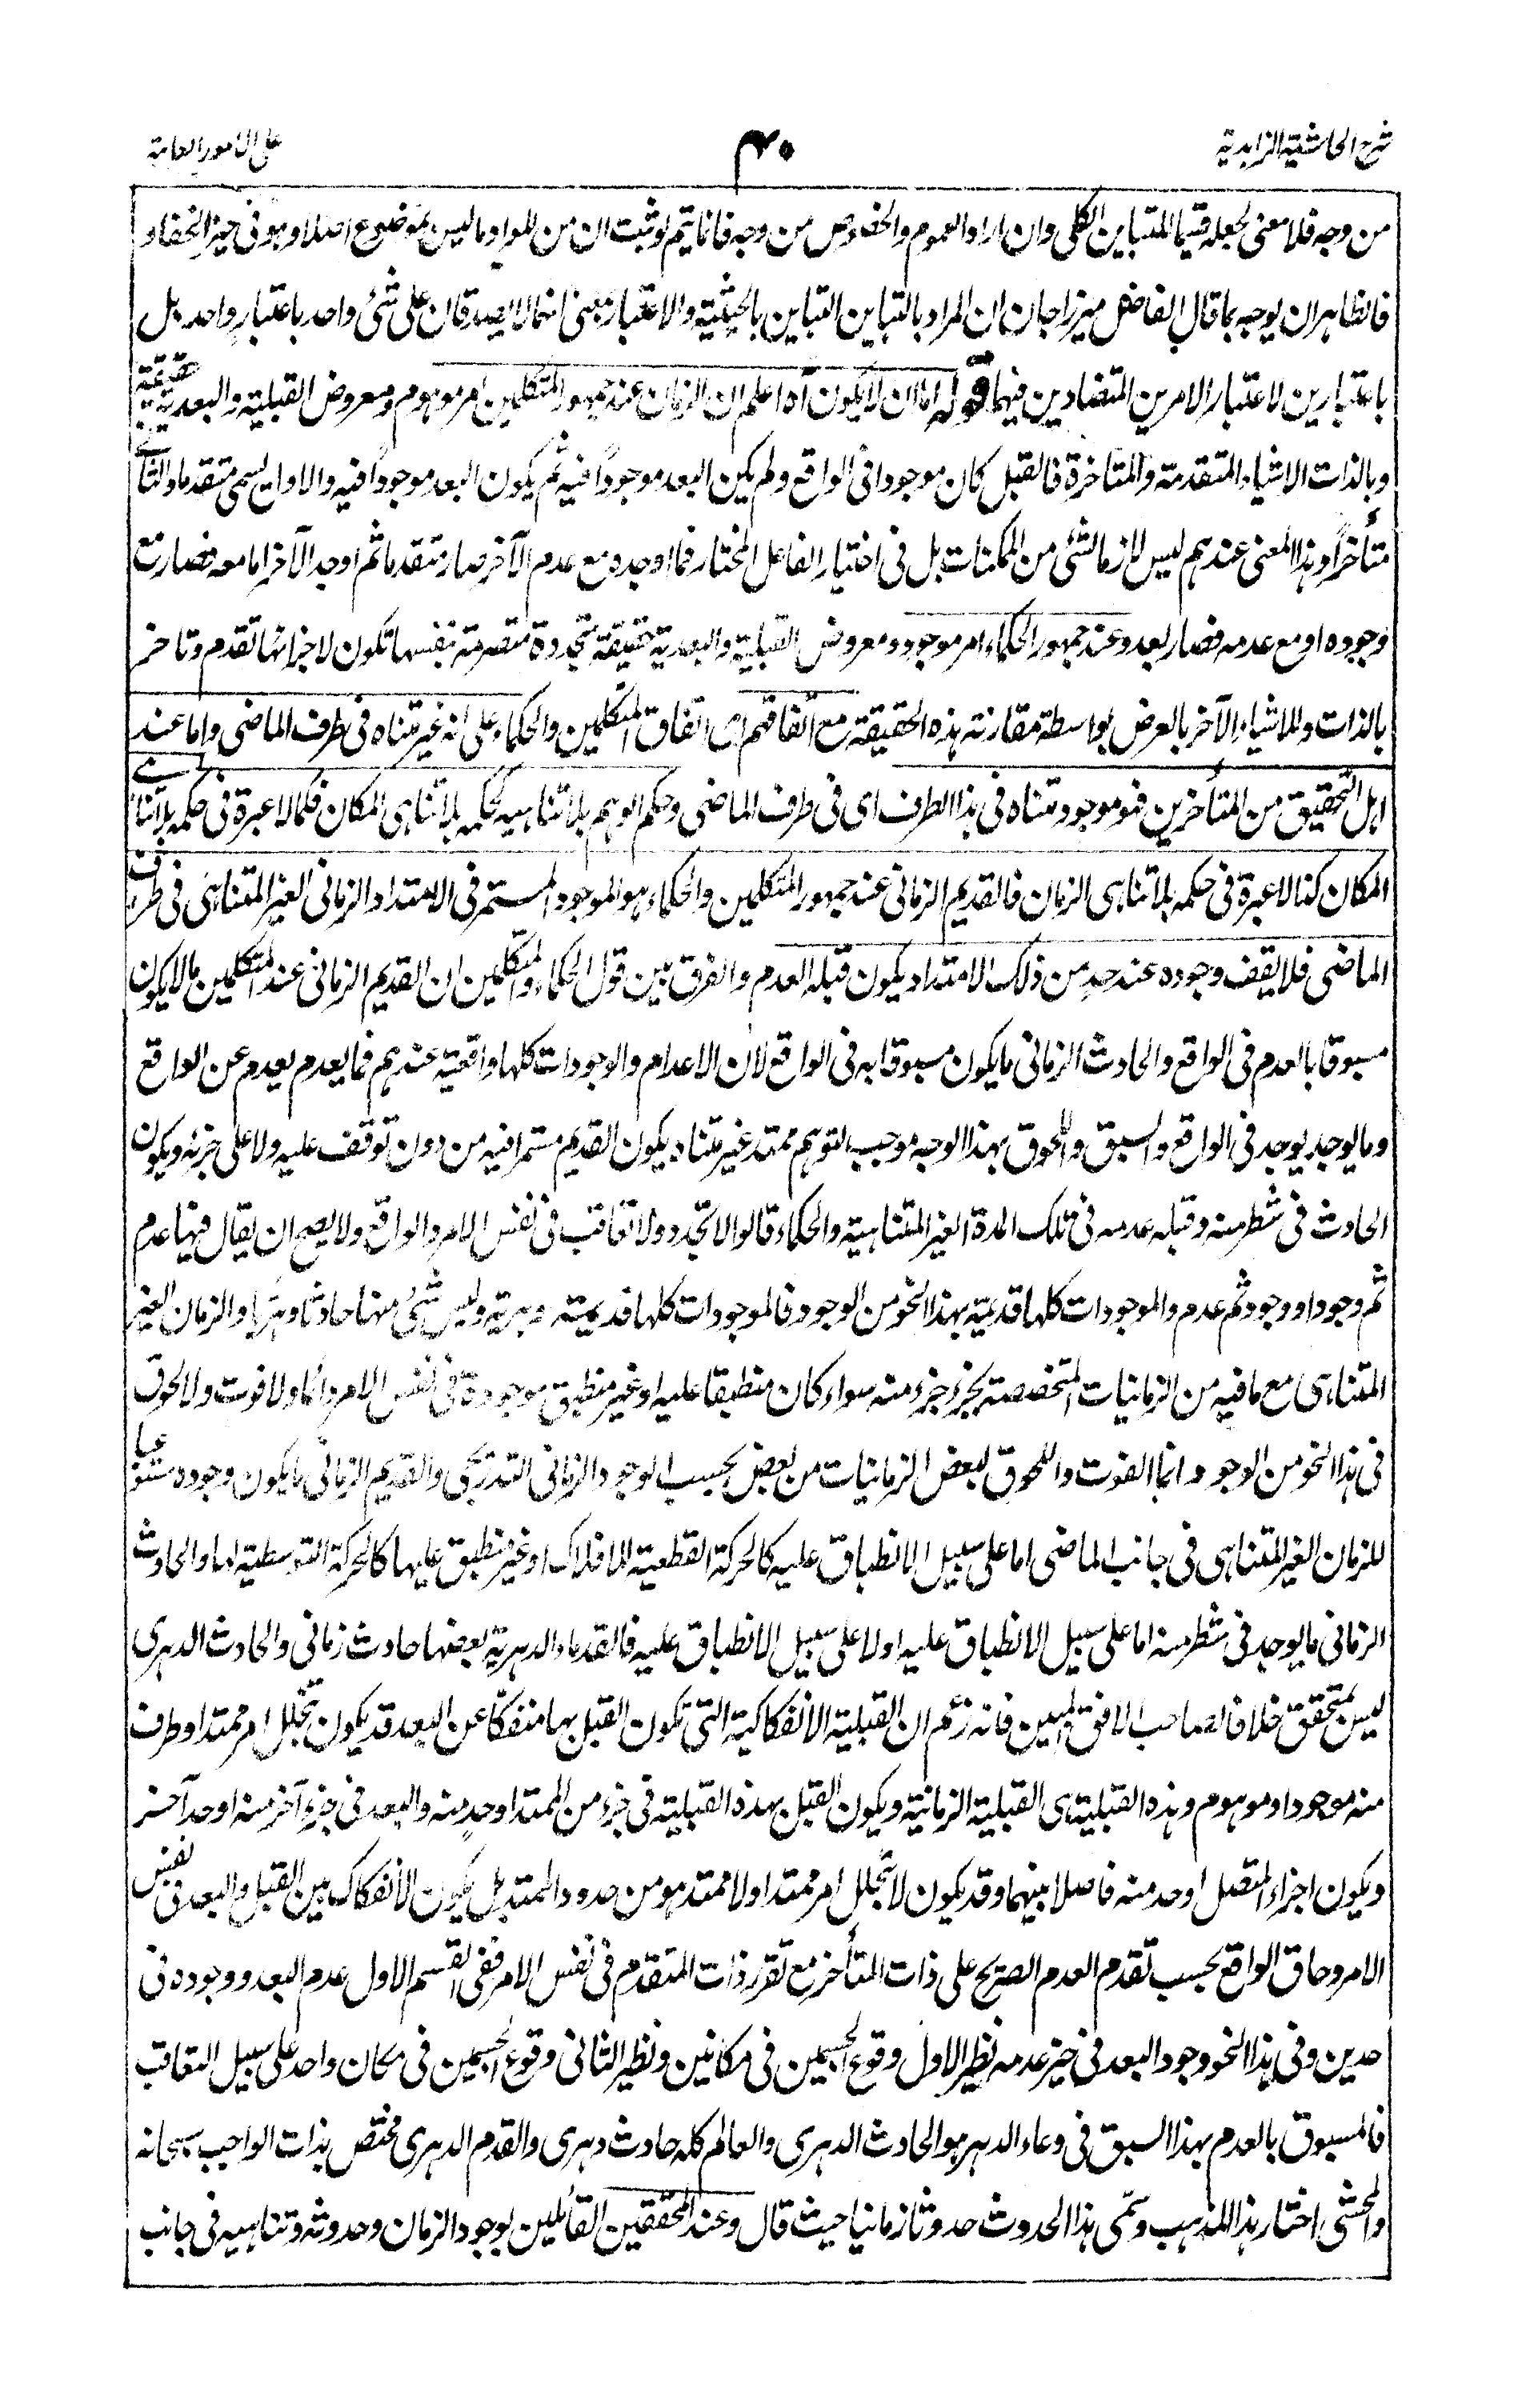 شرح الحاشية الزاهدية
٤٠
على الامور العامة
من وجه فلا معنى لجعله قسيما للمتباين الكلى وان اراد العموم والخصوص من وجه فانما يتم لو ثبت ان من المواد ما ليس بموضوع اصلا وهو فى حيز الخفاء و
فالظاهر ان يوجه بما قال الفاضل ميرزا جان ان المراد بالتباين التباين بالحيثية والاعتبار بمعنى انهما لا يصدقان على شئ واحد باعتبار واحد بل
باعتبارين لاعتبار الامرين المتضادين فيهما قوله اما ان لا يكون آه اعلم ان الزمان عند جمهور المتكلمين امر موهوم ومعروض القبلية والبعدية حقيقة
وبالذات الاشياء المتقدمة والمتاخرة فالقبل كان موجودا فى الواقع ولم يكن البعد موجودا فيه ثم يكون البعد موجودا فيه والاول يسمى متقدما والثانى
متأخرا وهذا المعنى عندهم ليس لازما لشئ من الممكنات بل فى اختيار الفاعل المختار فما اوجده مع عدم الآخر صار متقدما ثم اوجد الآخر اما معه فصار مع
وجوده او مع عدمه فصار بعد وعند جمهور الحكماء امر موجود ومعروض القبلية والبعدية حقيقة متجددة متصرمة بنفسها تكون لاجزائها تقدم وتاخر
بالذات وللاشياء الآخر بالعرض بواسطة مقارنة هذه الحقيقة مع اتفاقهم اى اتفاق المتكلمين والحكماء على انه غير متناه فى طرف الماضى واما عند
اهل التحقيق من المتأخرين فهو موجود متناه فى هذا الطرف اى فى طرف الماضى وحكم الوهم بلا تناهيه كحكمه بلا تناهى المكان فكما لا عبرة فى حكمه بلا تناهى
المكان كذا لا عبرة فى حكمه بلا تناهى الزمان فالقديم الزمانى عند جمهور المتكلمين والحكماء هو الموجود المستمر فى الامتداد الزمانى الغير المتناهى فى طرف
الماضى فلا يقف وجوده عند حد من ذلك الامتداد يكون قبله العدم والفرق بين قول الحكماء والمتكلمين ان القديم الزمانى عند المتكلمين ما لا يكون
مسبوقا بالعدم فى الواقع والحادث الزمانى ما يكون مسبوقا به فى الواقع لان الاعدام والوجودات كلها واقعية عندهم فما يعدم يعدم عن الواقع
وما يوجد يوجد فى الواقع والسبق واللحوق بهذا الوجه موجب لتوهم ممتد غير متناه يكون القديم مستمرا فيه من دون توقف عليه ولا على جزئه ويكون
الحادث فى شطر منه وقبله عدمه فى تلك المدة الغير المتناهية والحكماء قالوا لا تجدد ولا تعاقب فى نفس الامر والواقع ولا يصح ان يقال فيها عدم
ثم وجود او وجود ثم عدم والموجودات كلها قديمة بهذا النحو من الوجود فالموجودات كلها قديمة دهرية وليس شئ منها حادثا دهريا والزمان الغير
المتناهى مع ما فيه من الزمانيات المتخصصة بجزء جزء منه سواء كان منطبقا عليه او غير منطبق موجودة فى نفس الامر دائما ولا فوت ولا لحوق
فى هذا النحو من الوجود وانما الفوت واللحوق لبعض الزمانيات من بعض بحسب الوجود الزمانى التدريجى والقديم الزمانى ما يكون وجوده مستوعبا
للزمان الغير المتناهى فى جانب الماضى اما على سبيل الانطباق عليه كالحركة القطعية للافلاك او غير منطبق عليها كالحركة التوسطية لها والحادث
الزمانى ما يوجد فى شطر منه اما على سبيل الانطباق عليه او لا على سبيل الانطباق عليه فالقدماء الدهرية بعضها حادث زمانى والحادث الدهرى
ليس بمتحقق خلافا لصاحب الافق المبين فانه زعم ان القبلية الانفكاكية التى تكون القبل بها منفكا عن البعد قد يكون بتخلل امر ممتد او طرف
منه موجود او موهوم وهذه القبلية هى القبلية الزمانية ويكون القبل بهذه القبلية فى جزء من الممتد او حد منه والبعد فى جزء آخر منه او حد آخر
ويكون اجزاء المتصل او حد منه فاصلا بينهما وقد يكون لا بتخلل امر ممتد او لا ممتد هو من حدود الممتد بل يكون الانفكاك بين القبل والبعد فى نفس
الامر وحاق الواقع بحسب تقدم العدم الصريح على ذات المتأخر مع تقرر ذات المتقدم فى نفس الامر ففى القسم الاول عدم البعد ووجوده فى
حدين وفى هذا النحو وجود البعد فى حيز عدمه نظير الاول وقوع الجسمين فى مكانين ونظير الثانى وقوع الجسمين فى مكان واحد على سبيل التعاقب
فالمسبوق بالعدم بهذا السبق فى وعاء الدهر هو الحادث الدهرى والعالم كله حادث دهرى والقدم الدهرى مختص بذات الواجب سبحانه
والمحشى اختار هذا المذهب وسمى هذا الحدوث حدوثا زمانيا حيث قال وعند المحققين القائلين بوجود الزمان وحدوثه وتناهيه فى جانب